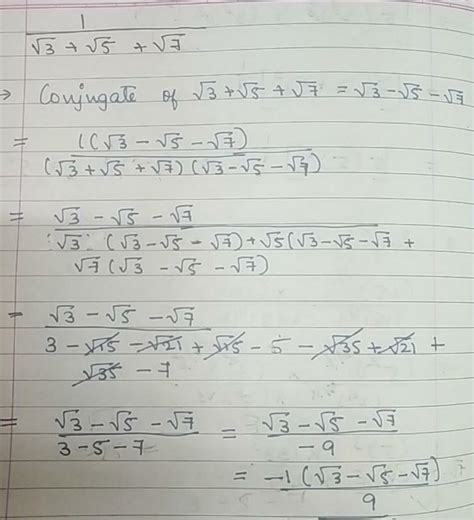 1
√3 + √5 + √7
→ Conjugate of √3 + √5 + √7 = √3 - √5 - √7
= 1(√3 - √5 - √7)
(√3 + √5 + √7) (√3 - √5 - √7)
= √3 - √5 - √7
√3 (√3 - √5 - √7) + √5 (√3 - √5 - √7 +
√7 (√3 - √5 - √7)
= √3 - √5 - √7
3 - √15 - √21 + √15 - 5 - √35 + √21 +
√35 - 7
= √3 - √5 - √7 = √3 - √5 - √7
3 - 5 - 7 - 9
= -1 (√3 - √5 - √7)
9